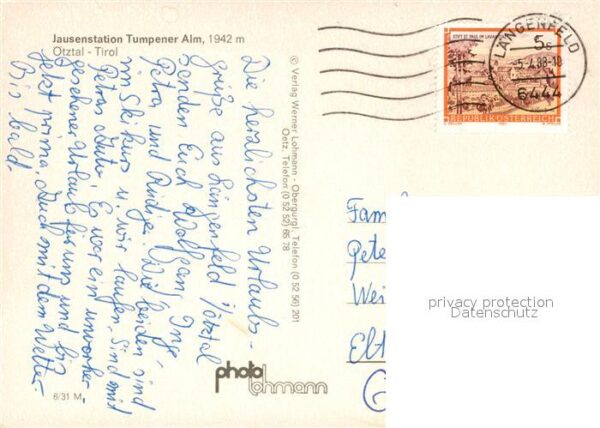 Jausenstation Tumpener Alm, 1942 m
Ötztal - Tirol
Die herzlichsten Urlaubs-
grüße aus Längenfeld/Ötztal
senden Euch Wolfram, Inge,
Petra und Rüdiger. Die beiden sind
im Skikurs u. wir laufen. Sind mit
Petras Auto. Es war ein unvorher-
gesehener Urlaub für uns und bis
jetzt prima. Auch mit dem Wetter.
Bis bald.
6/31 M
© Verlag Werner Lohmann - Obergurgl, Telefon (0 52 56) 201
Oetz, Telefon (0 52 52) 65 78
photo
lohmann
STIFT ST. PAUL IM LAVANTTAL
5s
REPUBLIK ÖSTERREICH
LÄNGENFELD
-5.-4.88-18
6444
Fam
Pete
Wei
Elt
privacy protection
Datenschutz